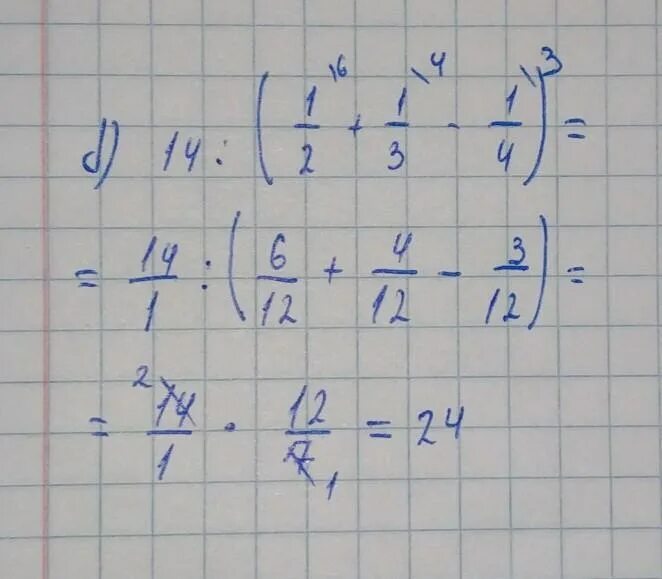 б) 14 : (1/2 \6 + 1/3 \4 - 1/4 \3) =
= 14/1 : (6/12 + 4/12 - 3/12) =
= 2 14/1 · 12/7 1 = 24